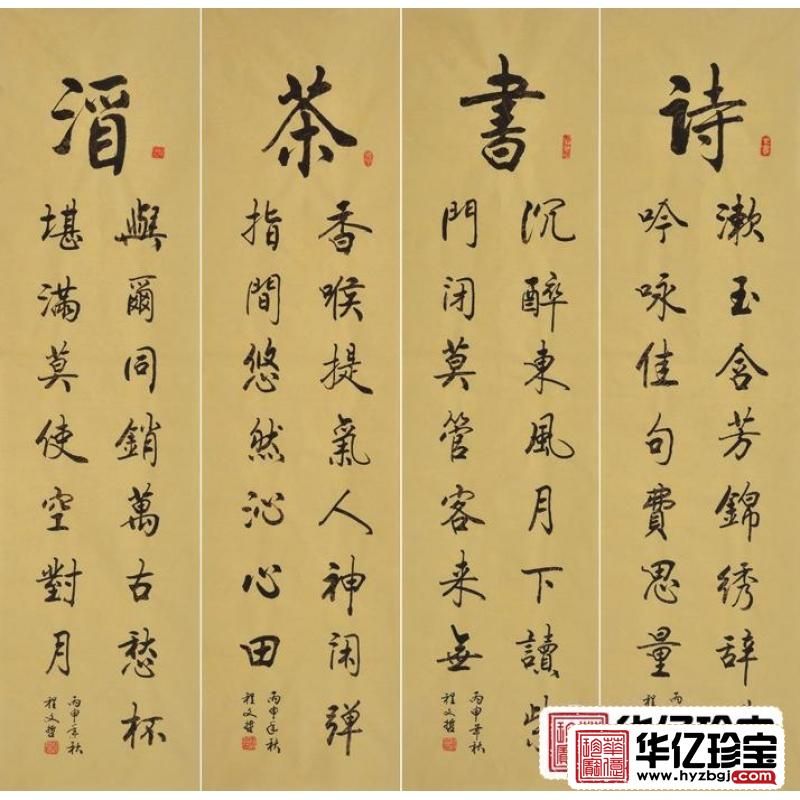 詩
漱玉含芳錦綉辭
吟咏佳句費思量
丙
程
書
沉醉東風月下讀柴
門闭莫管客来無
丙申年秋
程文哲
茶
香喉提氣人神闲弹
指間悠然沁心田
丙申年秋
程文哲
酒
與爾同銷萬古愁杯
堪滿莫使空對月
丙申年秋
程文哲
华亿珍宝
www.hyzbgj.com